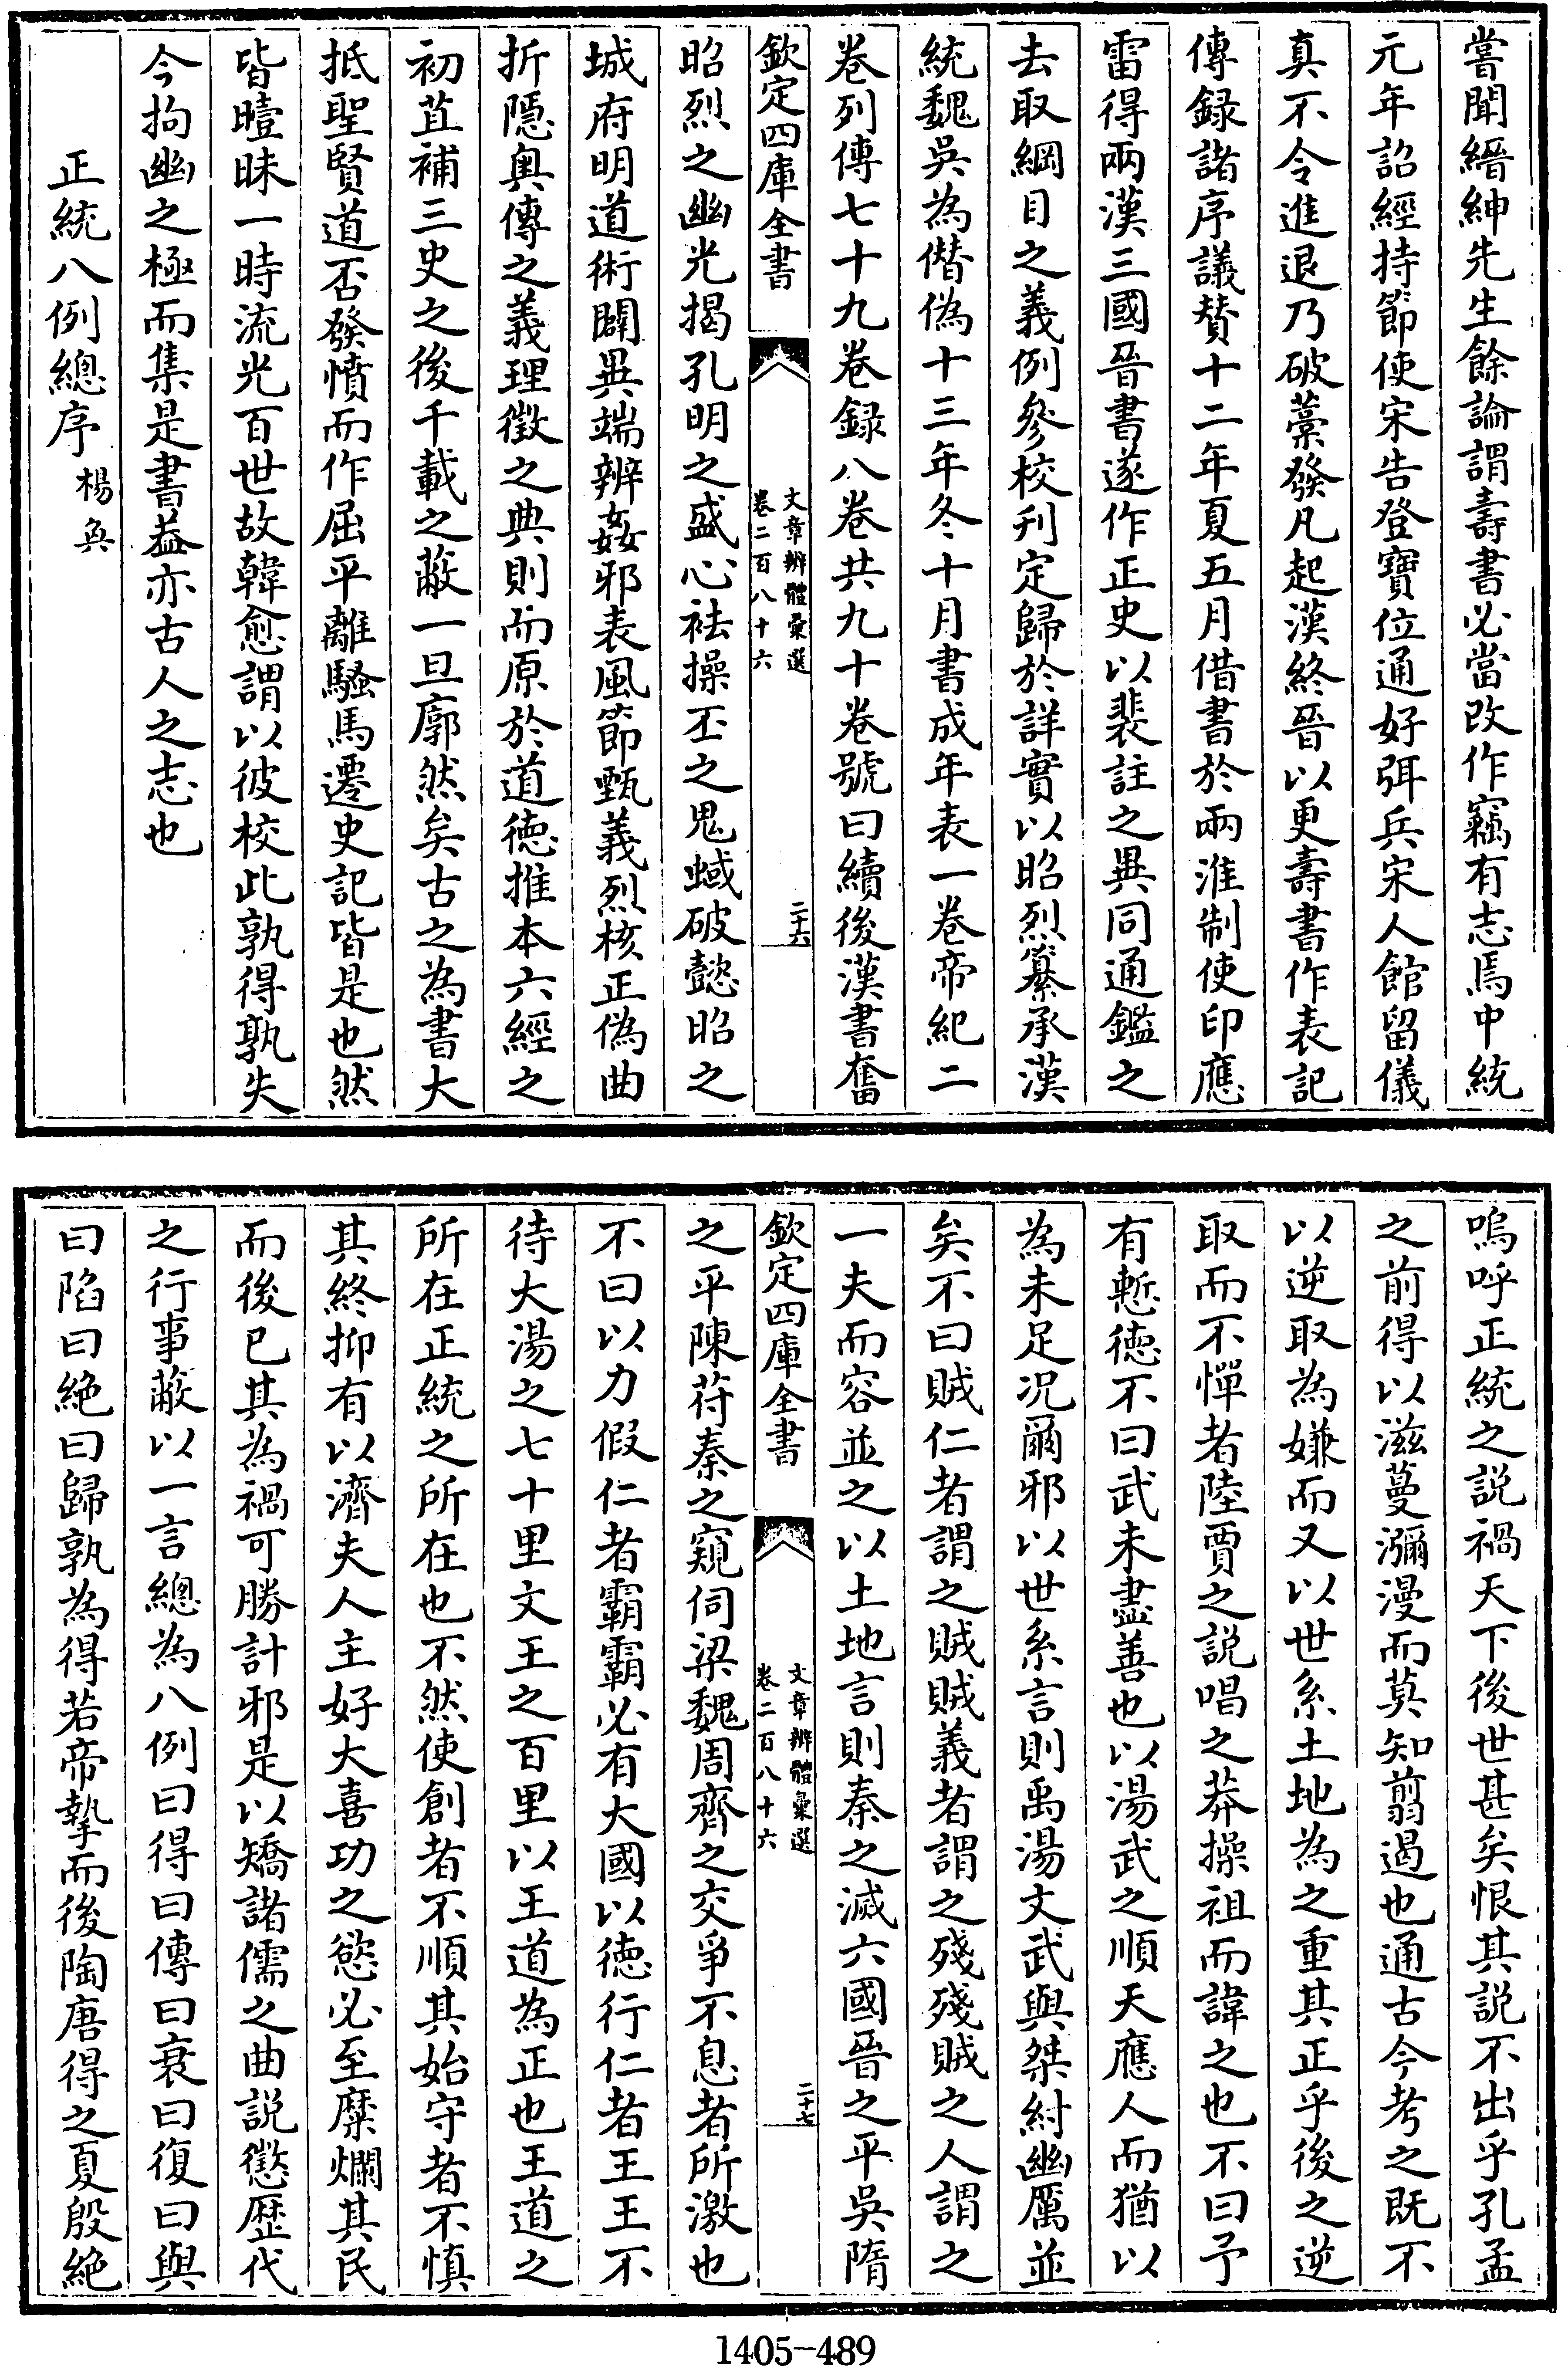 嘗聞縉紳先生餘論謂壽書必當改作竊有志焉中統
元年詔經持節使宋告登寶位通好弭兵宋人館留儀
真不令進退乃破藁發凡起漢終晉以更壽書作表記
傳録諸序議贊十二年夏五月借書於兩淮制使印應
雷得兩漢三國晉書遂作正史以裴註之異同通鑑之
去取綱目之義例參校刋定歸於詳實以昭烈纂承漢
統魏吳為僭偽十三年冬十月書成年表一卷帝紀二
卷列傳七十九卷録八卷共九十卷號曰續後漢書奮
欽定四庫全書
文章辨體彚選
卷二百八十六
二十六
昭烈之幽光揭孔明之盛心祛操丕之鬼蜮破懿昭之
城府明道術闢異端辨姦邪表風節甄義烈核正偽曲
折隱奥傳之義理徵之典則而原於道德推本六經之
初苴補三史之後千載之蔽一旦廓然矣古之為書大
抵聖賢道否發憤而作屈平離騷馬遷史記皆是也然
皆曀昧一時流光百世故韓愈謂以彼校此孰得孰失
今拘幽之極而集是書葢亦古人之志也
正統八例總序 楊奐
嗚呼正統之説禍天下後世甚矣恨其説不出乎孔孟
之前得以滋蔓瀰漫而莫知翦遏也通古今考之既不
以逆取為嫌而又以世系土地為之重其正乎後之逆
取而不憚者陸賈之説唱之莽操祖而諱之也不曰予
有慙德不曰武未盡善也以湯武之順天應人而猶以
為未足况爾邪以世系言則禹湯文武與桀紂幽厲並
矣不曰賊仁者謂之賊賊義者謂之殘殘賊之人謂之
一夫而容並之以土地言則秦之滅六國晉之平吳隋
欽定四庫全書
文章辨體彚選
卷二百八十六
二十七
之平陳苻秦之窺伺梁魏周齊之交爭不息者所激也
不曰以力假仁者霸霸必有大國以德行仁者王王不
待大湯之七十里文王之百里以王道為正也王道之
所在正統之所在也不然使創者不順其始守者不慎
其終抑有以濟夫人主好大喜功之慾必至糜爛其民
而後已其為禍可勝計邪是以矯諸儒之曲説懲歴代
之行事蔽以一言總為八例曰得曰傳曰衰曰復曰與
曰陷曰絶曰歸孰為得若帝摯而後陶唐得之夏殷絶
1405-489